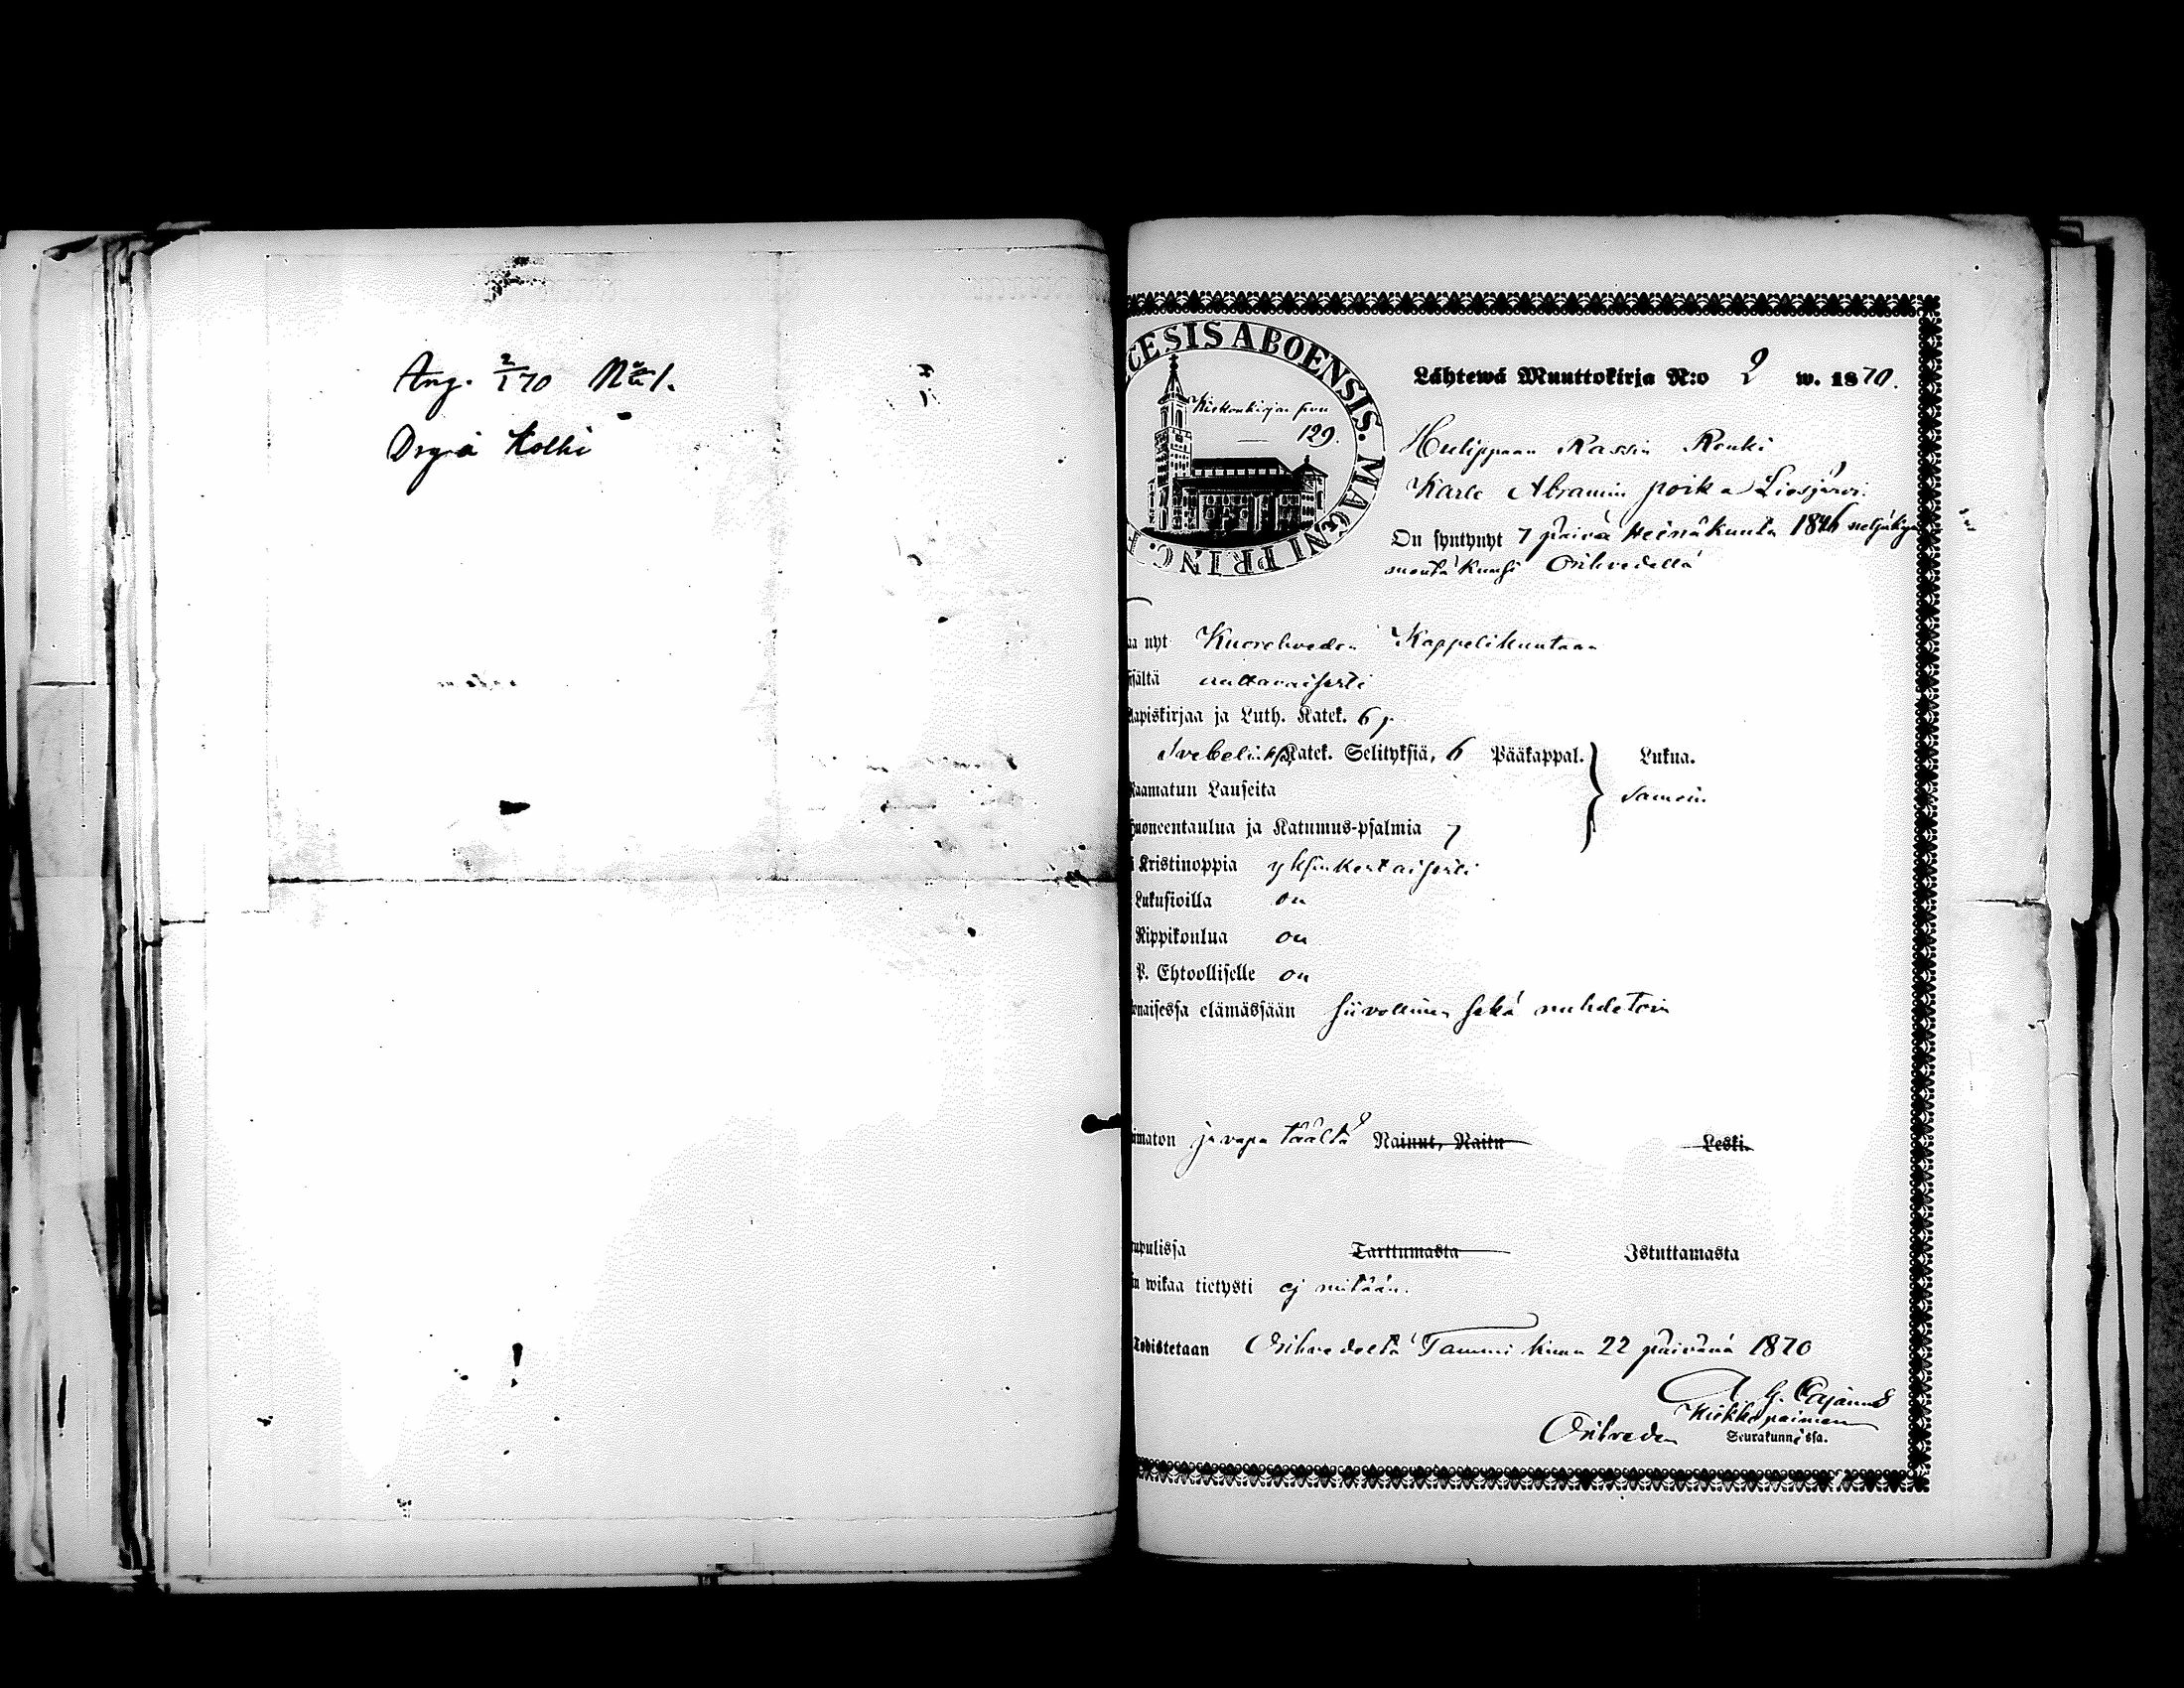 Ang. 2/1 70 No 1.
Drg å Kolhi
ESIS ABOENSIS. MAGNI PRINC.
Kirkonkirjan sivu
129.
Lähtewä Muuttokirja N:o 2 w. 1870.
Rassin Renki
Karle Abramin poika Liesjärvi.
On syntynyt 7 päivä Heinäkuuta 1846 neljäkym
mentä kuusi Orihvedellä
nyt Kuorehveden Kappelikuntaan
sältä auttavaisesti
apiskirjaa ja Luth. Katek. 6 p.
Svebeliuksen Katek. Selityksiä, 6 Pääkappal. } Lukua.
Raamatun Lauseita Samoin
uoneentaulua ja Katumus-psalmia 7
Kristinoppia yksinkertaisesti
Lukusioilla on
Rippikoulua on
P. Ehtoolliselle on
onaisessa elämässään siivollinen sekä nuhdetoin
imaton ja vapa täältä Nainut, Naitu Leski.
upulissa Tarttumasta Istuttamasta
wikaa tietysti ej mitään.
Todistetaan Orihvedeltä Tammi kuun 22 päivänä 1870
A. G. Cajanus
Kirkkopaimen
Orihveden Seurakunnassa.